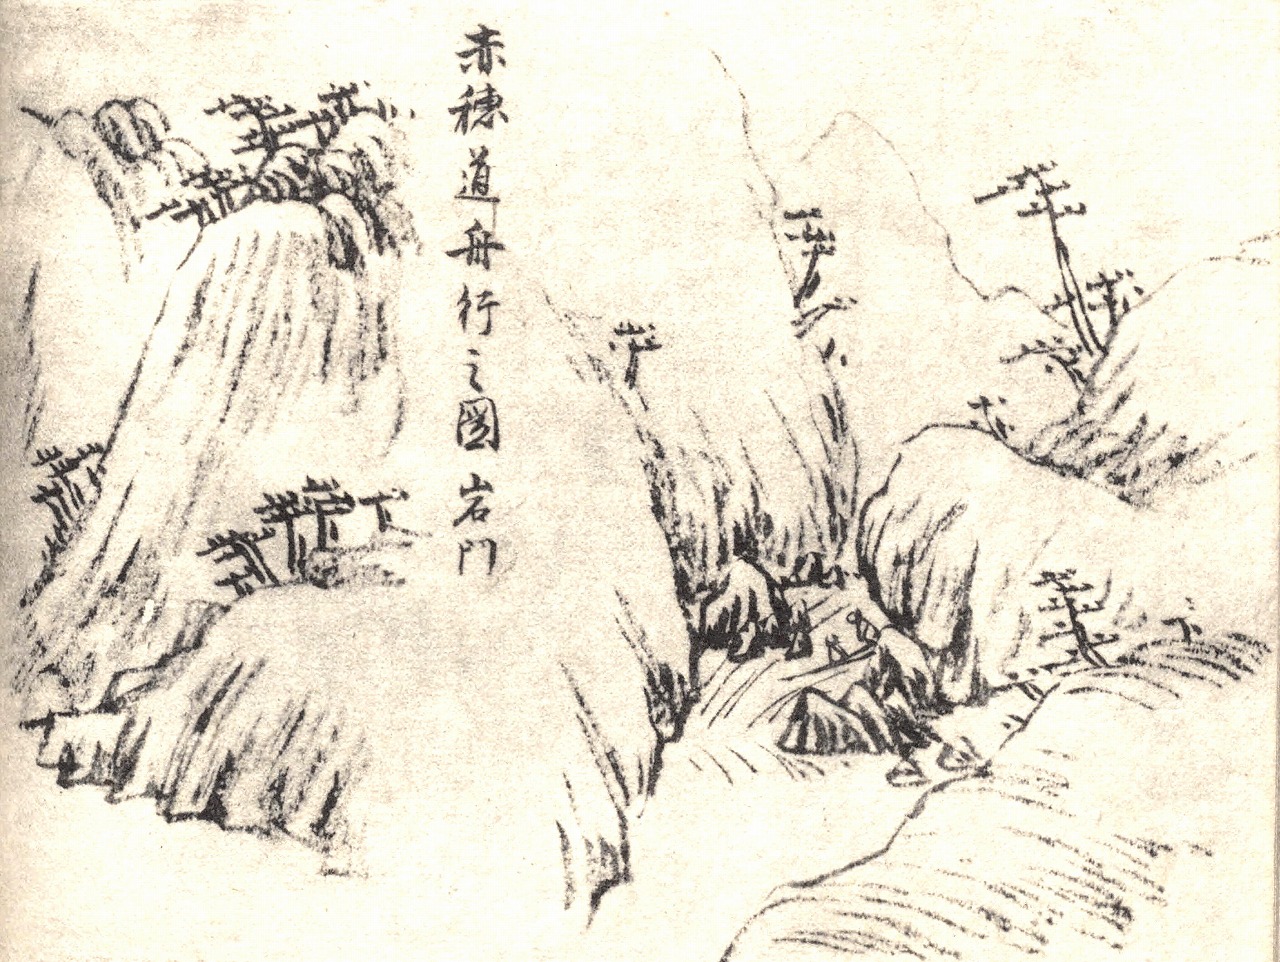 赤穂道舟行之圖 岩門